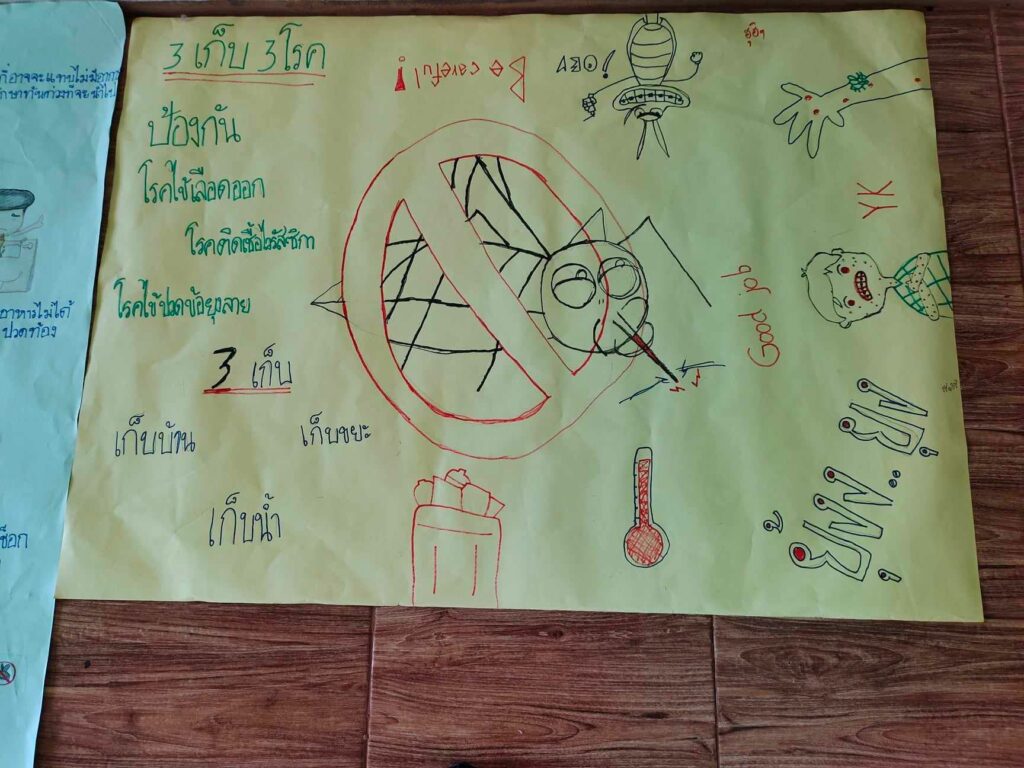 3 เก็บ 3 โรค
ป้องกัน
โรคไข้เลือดออก
โรคติดเชื้อไวรัสซิกา
โรคไข้ปวดข้อยุงลาย
3 เก็บ
เก็บบ้าน เก็บขยะ
เก็บน้ำ
Be careful!
Good job
YK
อาหารไม่ได้
ปวดท้อง
ช็อก